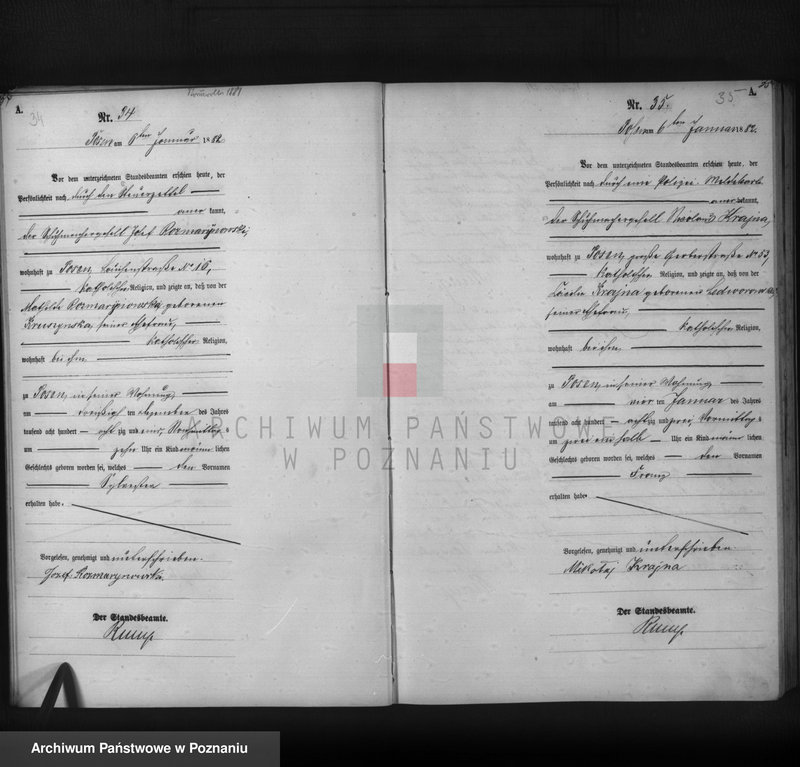 A.
34
Nr. 34
Posen am 6ten Januar 1882
Vor dem unterzeichneten Standesbeamten erschien heute, der
Persönlichkeit nach durch den Steuerzettel
kannt,
der Schuhmachergesell Josef
wohnhaft zu Posen, No 16,
katholischer Religion, und zeigte an, daß von der
geborenen
seiner Ehefrau,
katholischer Religion,
wohnhaft bei ihm
zu Posen, in seiner Wohnung,
am dreißigsten Dezember des Jahres
tausend acht hundert acht zig und eins, Vormittags
um zehn Uhr ein Kind männlichen
Geschlechts geboren worden sei, welches den Vornamen
Sylvester
erhalten habe.
Vorgelesen, genehmigt und unterschrieben.
Josef
Der Standesbeamte.
35
A.
Nr. 35.
Posen am 6ten Januar 1882.
Vor dem unterzeichneten Standesbeamten erschien heute, der
Persönlichkeit nach durch eine Polizei Meldekarte
kannt,
der Schuhmachergesell Krajna,
wohnhaft zu Posen, große Gerberstraße No 53,
katholischer Religion, und zeigte an, daß von der
Krajna geborenen
seiner Ehefrau,
katholischer Religion,
wohnhaft bei ihm
zu Posen, in seiner Wohnung
am vier ten Januar des Jahres
tausend acht hundert acht zig und zwei, Vormittags
um ein halb Uhr ein Kind männlichen
Geschlechts geboren worden sei, welches den Vornamen
Franz
erhalten habe.
Vorgelesen, genehmigt und unterschrieben
Mikołaj Krajna
Der Standesbeamte.
ARCHIWUM PAŃSTWOWE
W POZNANIU
Archiwum Państwowe w Poznaniu